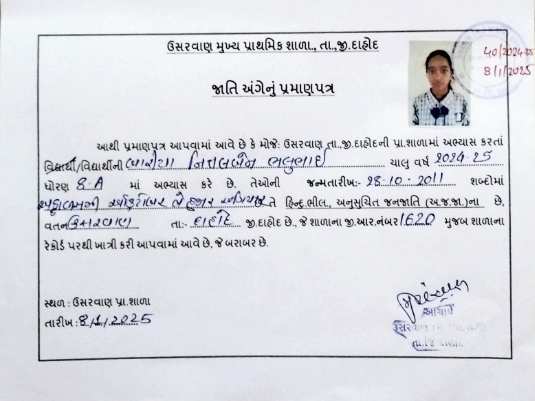 ઉસરવાણ મુખ્ય પ્રાથમિક શાળા., તા.,જી.દાહોદ
40/2024-25
8/1/2025
જાતિ અંગેનું પ્રમાણપત્ર
આથી પ્રમાણપત્ર આપવામાં આવે છે કે મોજે: ઉસરવાણ તા.,જી.દાહોદની પ્રા.શાળામાં અભ્યાસ કરતાં
વિદ્યાર્થી/વિદ્યાર્થીની ભાઈ ચાલુ વર્ષ 2024-25
ધોરણ 8-A માં અભ્યાસ કરે છે. તેઓની જન્મતારીખ:- 28-10-2011 શબ્દોમાં
ઓક્ટોબર બે હજાર અગિયાર તે હિન્દુ ભીલ., અનુસુચિત જનજાતિ (અ.જ.જા.)ના છે,
વતન ઉસરવાણ તા:- દાહોદ જી.દાહોદ છે., જે શાળાના જી.આર.નંબર 1620 મુજબ શાળાના
રેકોર્ડ પરથી ખાત્રી કરી આપવામાં આવે છે, જે બરાબર છે.
સ્થળ : ઉસરવાણ પ્રા.શાળા
તારીખ: 8/1/2025
આચાર્ય